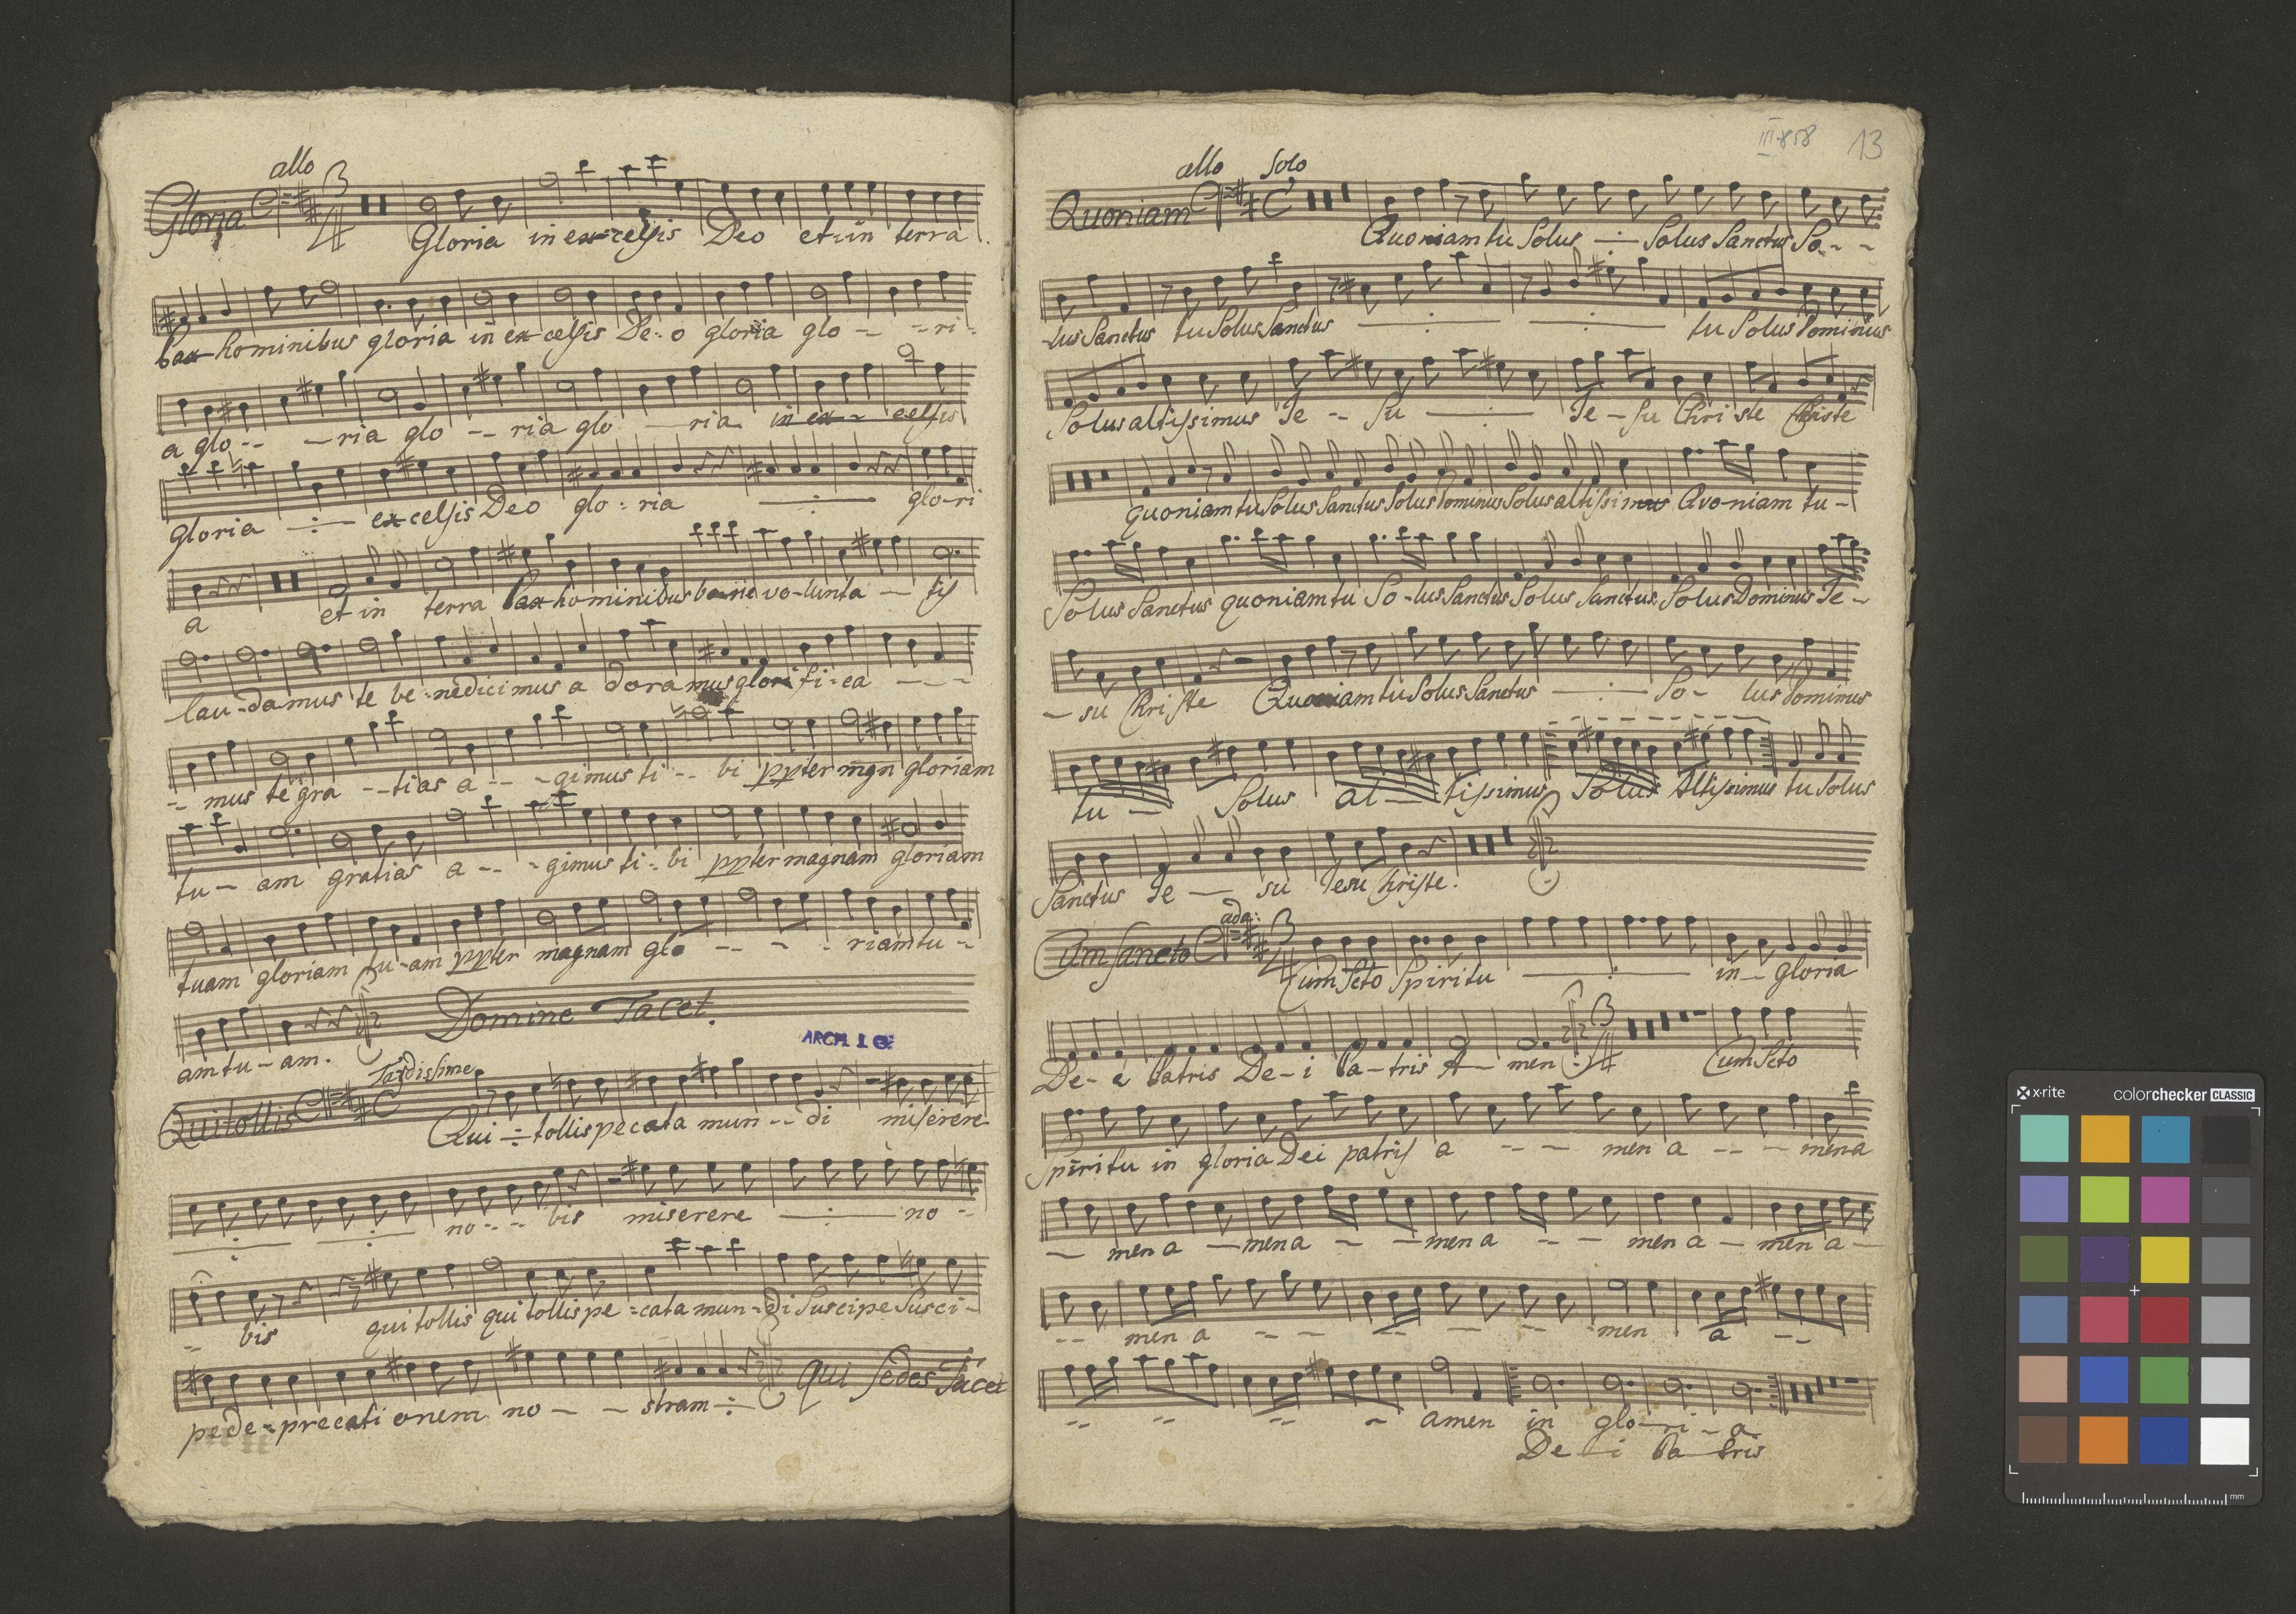 allo
Gloria 3/4
Gloria in excelsis Deo et in terra
Pax hominibus gloria in excelsis De-o gloria glo - - ri-
a glo-- - ria glo -- ria glo - ria in ex - celsis
Gloria -:- excelsis Deo glo-ria -:- glo-ri
a et in terra Pax hominibus bonæ vo-lunta - tis
lau-damus te be-nedicimus a doramus glorifi-ca - - -
-- mus te gra --tias a -- -gimus ti -- bi ppter mgn gloriam
tu- am gratias a -- -gimus ti-bi ppter magnam gloriam
tuam gloriam tu-am ppter magnam glo -- - - riam tu -
am tu-am. Domine Tacet.
ARCH. I
Tardissime
Qui tollis C
Qui -:- tollis pecata mun -- di miserere
-:- -:- no --- bis miserere -:- no -
- bis qui tollis qui tollis pe-cata mun-di Suscipe Susci-
pe de-precati onem no - - stram -:- Qui Sedes Tacet
III-858 13
allo Solo
Quoniam C
Quoniam tu Solus -:- Solus Sanctus So- -
-lus Sanctus tu Solus Sanctus -:- -:- tu Solus Dominus
Solus altissimus Je -- su -:- Je - su Chri ste Christe
quoniam tu Solus Sanctus Solus Dominus Solus altissimus Quo-niam tu-
Solus Sanctus quoniam tu So-lus Sanctus Solus Sanctus Solus Dominus Je-
- su Christe Quoniam tu Solus Sanctus -:- So- lus Dominus
tu - Solus al - tissimus Solus Altissimus tu Solus
Sanctus Je - su Jesu Christe.
ada:
Cum Sancto 3/4
Cum Scto Spiritu -:- in - gloria
De-i Patris De-i Pa-tris A - men 3/4 Cum Scto
Spiritu in gloria Dei patris a -- - men a -- - men a
- men a - men a - - men a - - men a - men a -
-- men a -- -- - - men a --
-- -- -- - amen in glo-ri-a
De - i Pa - tris